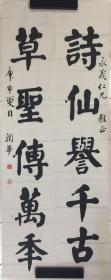 永義仁兄 雅正
詩仙譽千古
草聖傳萬季
庚申夏日
潤華